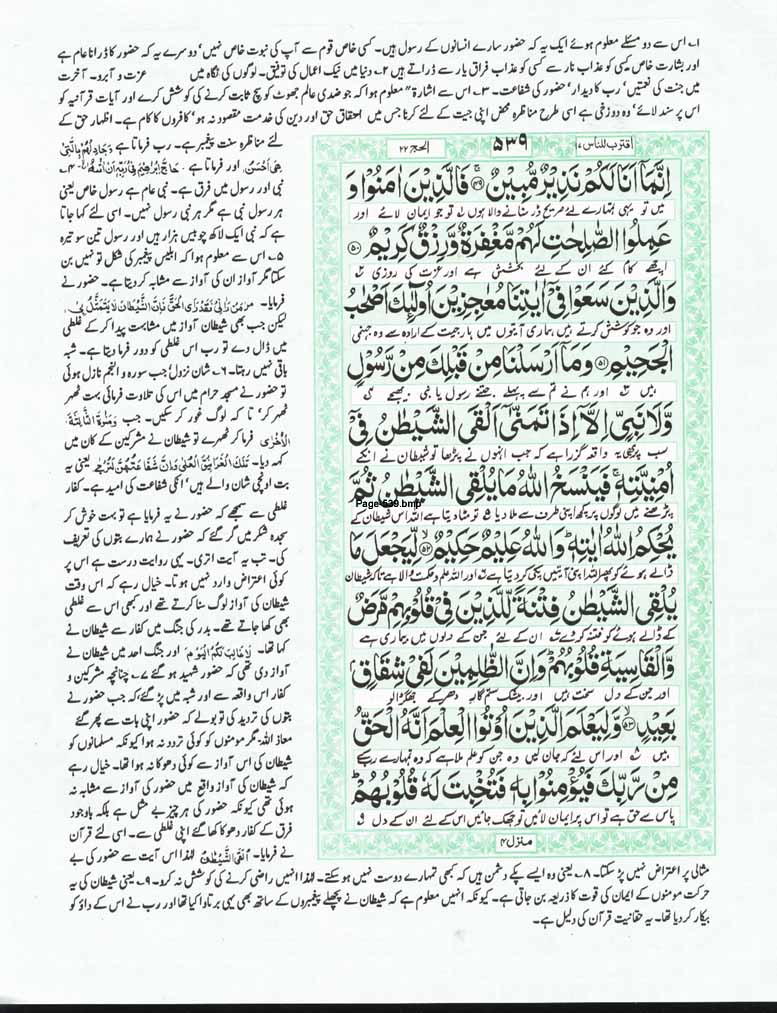 ۱۔ اس سے دو مسئلے معلوم ہوئے ایک یہ کہ حضور سارے انسانوں کے رسول ہیں۔ کسی خاص قوم سے آپ کی نبوت خاص نہیں' دوسرے یہ کہ حضور کا ڈرانا عام ہے
اور بشارت خاص کسی کو عذاب نار سے کسی کو عذاب فراق یار سے ڈراتے ہیں ۲۔ دنیا میں نیک اعمال کی توفیق۔ لوگوں کی نگاہ میں عزت و آبرو۔ آخرت
میں جنت کی نعمتیں' رب کا دیدار' حضور کی شفاعت۔ ۳۔ اس سے اشارۃ" معلوم ہوا کہ جو ضدی عالم جھوٹ کو سچ ثابت کرنے کی کوشش کرے اور آیات قرآنیہ کو
اس پر سند لائے' وہ دوزخی ہے اسی طرح مناظرہ محض اپنی جیت کے لئے کرنا جس میں احقاق حق اور دین کی خدمت مقصود نہ ہو' کافروں کا کام ہے۔ اظہار حق کے
لئے مناظرہ سنت پیغمبر ہے۔ رب فرماتا ہے وَجَادِلْهُمْ بِالَّتِیْ
هِیَ اَحْسَنُ۔ اور فرماتا ہے۔ حَآجَّ اِبْرٰهٖمَ فِیْ رَبِّهٖۤ اَنْ اٰتٰىهُ الخ ۴۔
نبی اور رسول میں فرق ہے۔ نبی عام ہے رسول خاص یعنی
ہر رسول نبی ہے مگر ہر نبی رسول نہیں۔ اسی لئے کہا جاتا
ہے کہ نبی ایک لاکھ چوبیس ہزار ہیں اور رسول تین سو تیرہ
۵۔ اس سے معلوم ہوا کہ ابلیس پیغمبر کی شکل تو نہیں بن
سکتا مگر آواز ان کی آواز سے مشابہ کر دیتا ہے۔ حضور نے
فرمایا۔ مَنْ رَاٰنِیْ فَقَدْ رَای الْحَقَّ فَاِنَّ الشَّیْطَانَ لَا یَتَمَثَّلُ بِیْ۔
لیکن جب بھی شیطان آواز میں مشابہت پیدا کر کے غلطی
میں ڈال دے تو رب اس غلطی کو دور فرما دیتا ہے۔ شبہ
باقی نہیں رہتا۔ ۶۔ شان نزول' جب سورہ والنجم نازل ہوئی
تو حضور نے مسجد حرام میں اس کی تلاوت فرمائی بہت ٹھہر
ٹھہر کر' تا کہ لوگ غور کر سکیں۔ جب وَمَنٰوةَ الثَّالِثَةَ
الْاُخْرٰی فرما کر ٹھہرے تو شیطان نے مشرکین کے کان میں
کہہ دیا۔ تِلْكَ الْغَرَانِیْقُ الْعُلٰی وَاِنَّ شَفَاعَتَهُنَّ لَتُرْتَجٰی یعنی یہ
بت اونچی شان والے ہیں' انکی شفاعت کی امید ہے۔ کفار
غلطی سے سمجھے کہ حضور نے یہ فرمایا ہے تو بہت خوش ہو کر
سجدہ شکر میں گر گئے کہ حضور نے ہمارے بتوں کی تعریف
کی۔ تب یہ آیت اتری۔ یہی روایت درست ہے اس پر
کوئی اعتراض وارد نہیں ہوتا۔ خیال رہے کہ اس وقت
شیطان کی آواز لوگ سنا کرتے تھے اور کبھی اس سے غلطی
بھی کھا جاتے تھے۔ بدر کی جنگ میں کفار سے شیطان نے
کہا تھا۔ لَا غَالِبَ لَكُمُ الْیَوْمَ۔ اور جنگ احد میں شیطان نے
آواز دی تھی کہ حضور شہید ہو گئے ۷۔ چنانچہ مشرکین و
کفار اس واقعہ سے اور شبہ میں پڑ گئے کہ جب حضور نے
بتوں کی تردید کی تو بولے کہ حضور اپنی بات سے پھر گئے
معاذ اللہ۔ مگر مومنوں کو کوئی تردد نہ ہوا کیونکہ مسلمانوں کو
شیطان کی اس آواز سے کوئی دھوکا نہ ہوا تھا۔ خیال رہے
کہ شیطان کی آواز واقع میں حضور کی آواز سے مشابہ نہ
ہوئی تھی کیونکہ حضور کی ہر چیز بے مثل ہے بلکہ باوجود
فرق کے کفار دھوکا کھا گئے اپنی غلطی سے۔ اسی لئے قرآن
نے فرمایا۔ اَلْقَی الشَّیْطٰنُ لہٰذا اس آیت سے حضور کی بے
اقترب للناس ۱۷
۵۳۹
الحج ۲۲
اِنَّمَاۤ اَنَا لَكُمْ نَذِیْرٌ مُّبِیْنٌ ﴿۴۹﴾ فَالَّذِیْنَ اٰمَنُوْا وَ
میں تو یہی تمہارے لئے صریح ڈر سنانے والا ہوں ۱ تو جو ایمان لائے اور
عَمِلُوا الصّٰلِحٰتِ لَهُمْ مَّغْفِرَةٌ وَّرِزْقٌ كَرِیْمٌ ﴿۵۰﴾
اچھے کام کئے ان کے لئے بخشش ہے اور عزت کی روزی ۲
وَالَّذِیْنَ سَعَوْا فِیْۤ اٰیٰتِنَا مُعٰجِزِیْنَ اُولٰٓىِٕكَ اَصْحٰبُ
اور وہ جو کوشش کرتے ہیں ہماری آیتوں میں ہار جیت کے ارادہ سے وہ جہنمی
الْجَحِیْمِ ﴿۵۱﴾ وَمَاۤ اَرْسَلْنَا مِنْ قَبْلِكَ مِنْ رَّسُوْلٍ
ہیں ۳ اور ہم نے تم سے پہلے جتنے رسول یا نبی بھیجے ۴
وَّلَا نَبِیٍّ اِلَّاۤ اِذَا تَمَنّٰۤى اَلْقَى الشَّیْطٰنُ فِیْۤ
سب پر کبھی یہ واقعہ گزرا ہے کہ جب انہوں نے پڑھا تو شیطان نے انکے
اُمْنِیَّتِهٖ ۚ فَیَنْسَخُ اللّٰهُ مَا یُلْقِی الشَّیْطٰنُ ثُمَّ
پڑھنے میں لوگوں پر کچھ اپنی طرف سے ملا دیا ۵ تو مٹا دیتا ہے اللہ اس شیطان کے
Page-539.bmp
یُحْكِمُ اللّٰهُ اٰیٰتِهٖ ؕ وَاللّٰهُ عَلِیْمٌ حَكِیْمٌ ﴿۵۲﴾ لِّیَجْعَلَ مَا
ڈالے ہوئے کو پھر اللہ اپنی آیتیں پکی کر دیتا ہے ۶ اور اللہ علم و حکمت والا ہے تاکہ شیطان
یُلْقِی الشَّیْطٰنُ فِتْنَةً لِّلَّذِیْنَ فِیْ قُلُوْبِهِمْ مَّرَضٌ
کے ڈالے ہوئے کو فتنہ کر دے ۷ ان کے لئے جن کے دلوں میں بیماری ہے
وَّالْقَاسِیَةِ قُلُوْبُهُمْ ؕ وَاِنَّ الظّٰلِمِیْنَ لَفِیْ شِقَاقٍۭ
اور جن کے دل سخت ہیں اور بیشک ستم گار دھر کے جھگڑالو
بَعِیْدٍ ﴿۵۳﴾ وَّلِیَعْلَمَ الَّذِیْنَ اُوْتُوا الْعِلْمَ اَنَّهُ الْحَقُّ
ہیں ۸ اور اس لئے کہ جان لیں وہ جن کو علم ملا ہے کہ وہ تمہارے رب کے
مِنْ رَّبِّكَ فَیُؤْمِنُوْا بِهٖ فَتُخْبِتَ لَهٗ قُلُوْبُهُمْ ؕ
پاس سے حق ہے تو اس پر ایمان لائیں تو جھک جائیں اس کے لئے ان کے دل ۹
منزل ۴
مثالی پر اعتراض نہیں پڑ سکتا۔ ۸۔ یعنی وہ ایسے پکے دشمن ہیں کہ کبھی تمہارے دوست نہیں ہو سکتے۔ لہٰذا انہیں راضی کرنے کی کوشش نہ کرو۔ ۹۔ یعنی شیطان کی یہ
حرکت مومنوں کے ایمان کی قوت کا ذریعہ بن جاتی ہے۔ کیونکہ انہیں معلوم ہے کہ شیطان نے پچھلے پیغمبروں کے ساتھ بھی یہی برتاوا کیا تھا اور رب نے اس کے داؤ کو
بیکار کر دیا تھا۔ یہ حقانیت قرآن کی دلیل ہے۔